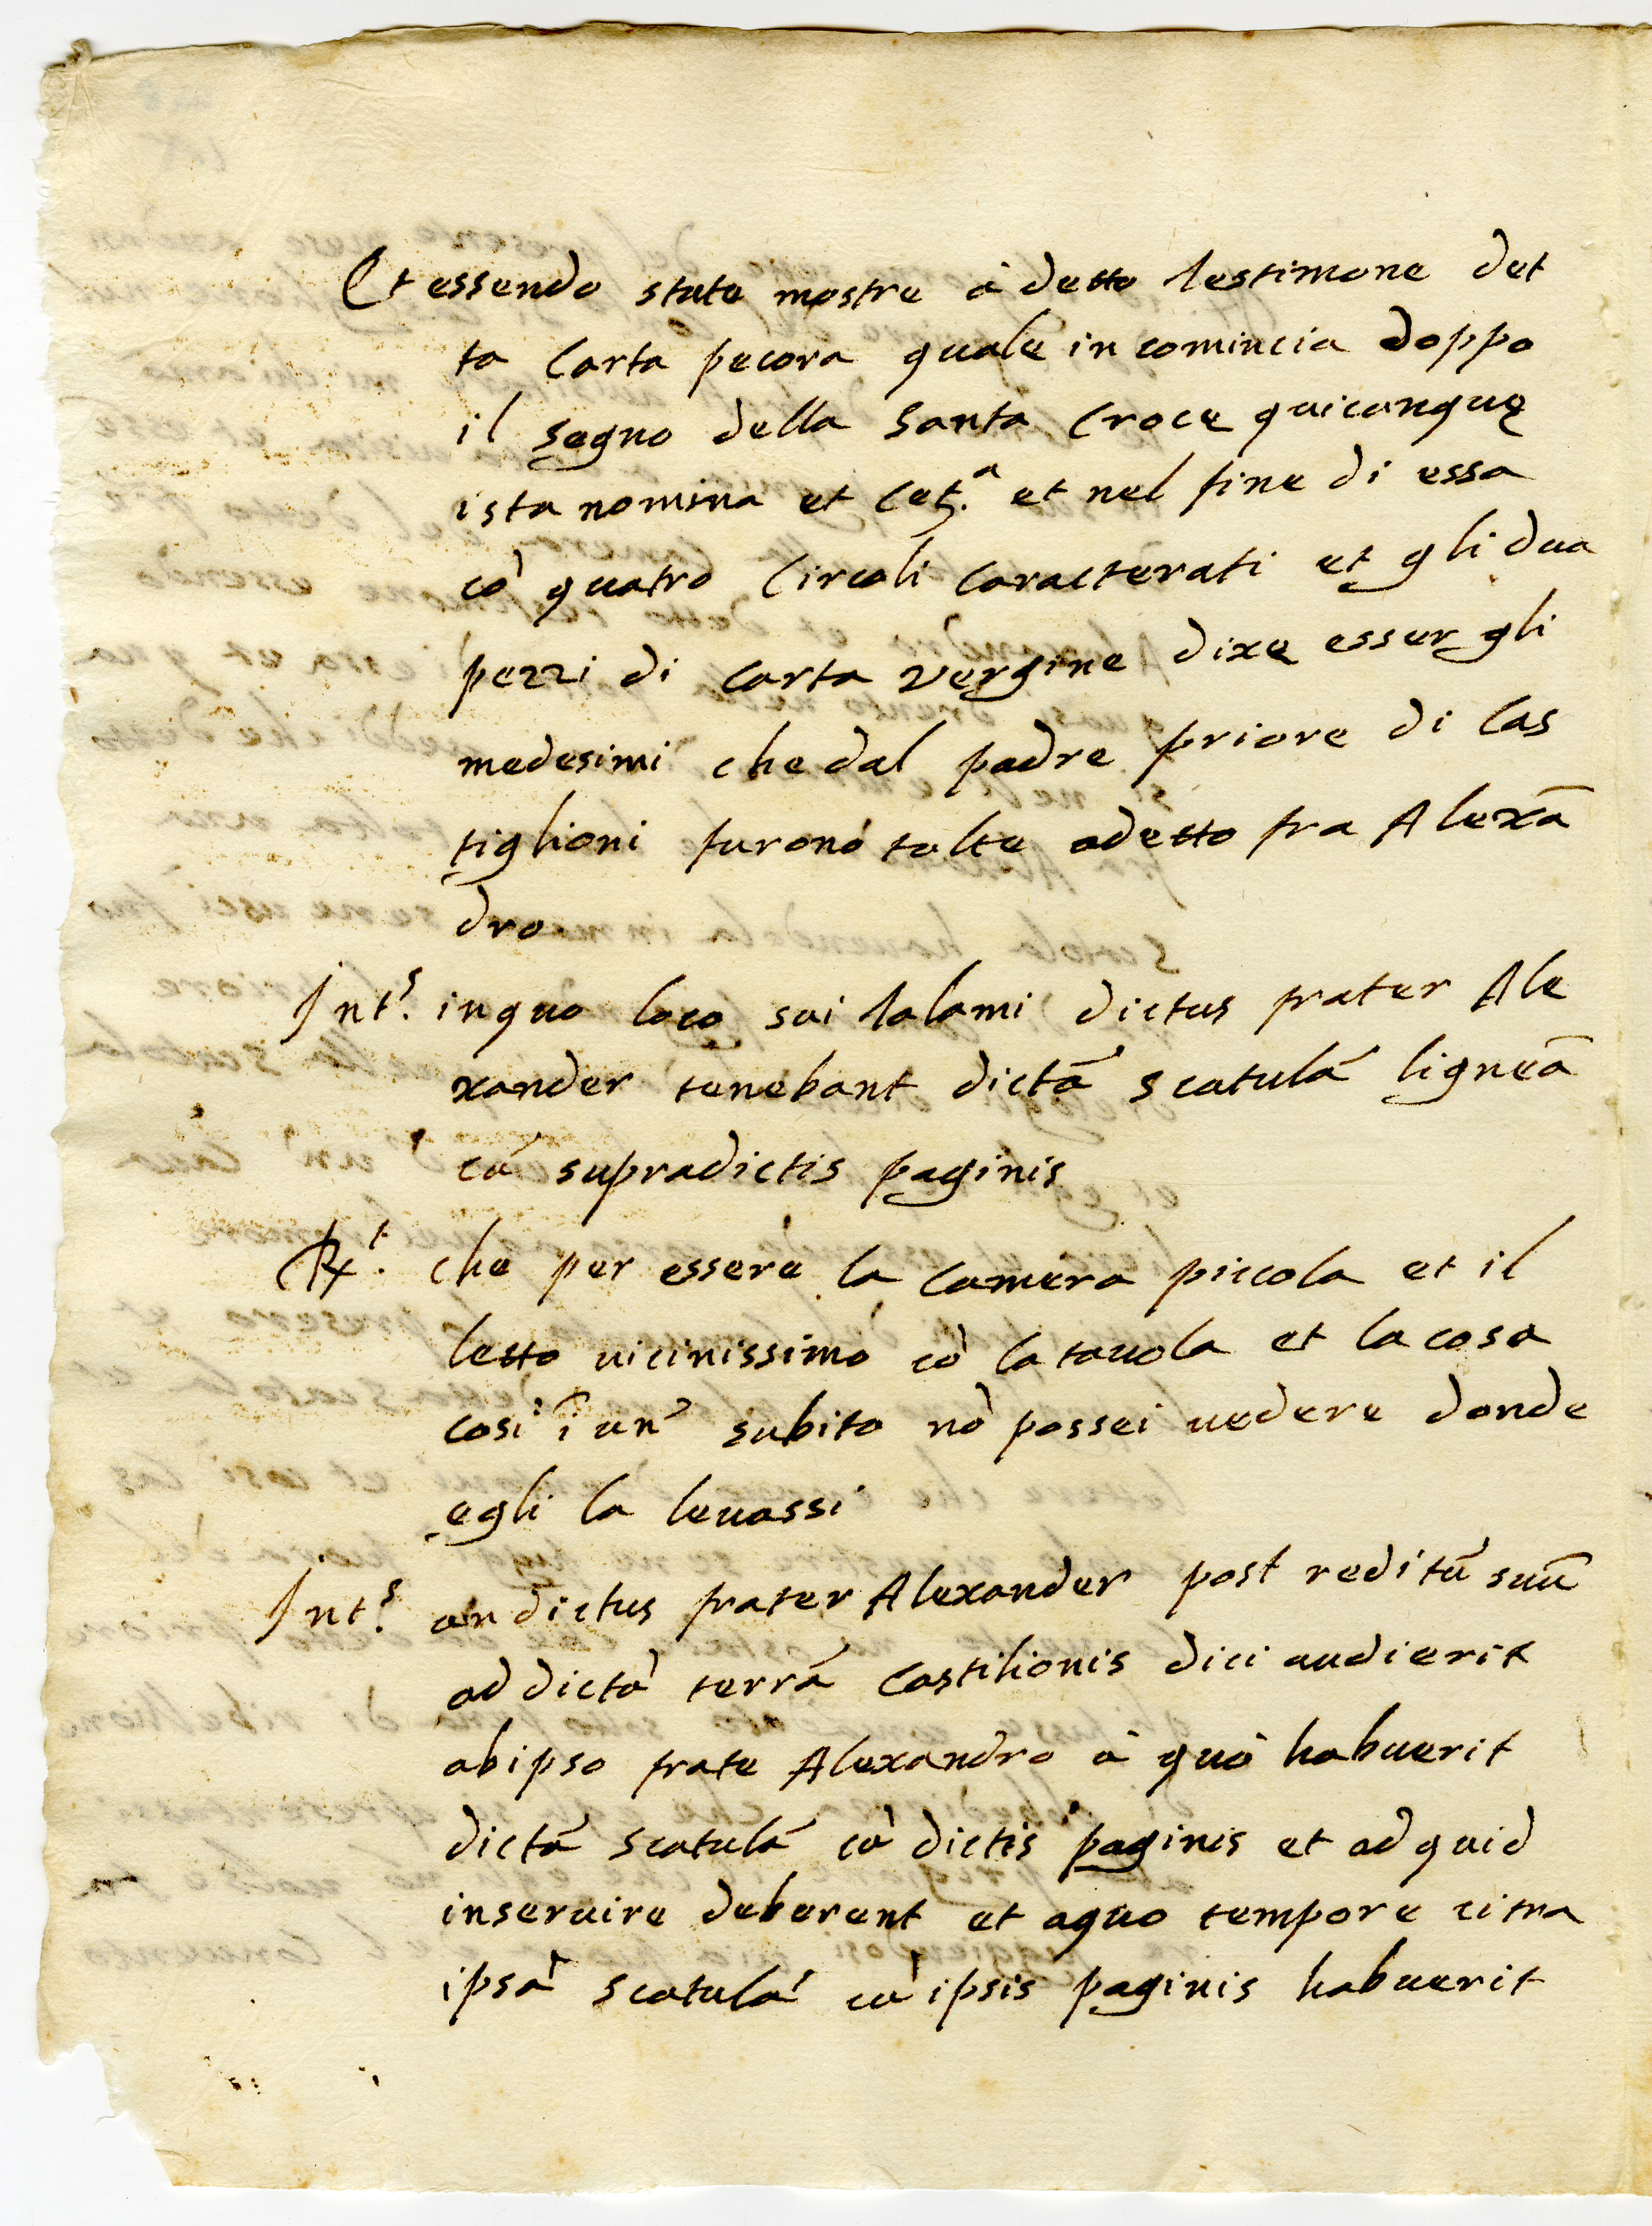 Et essendo state mostre à detto testimone det
ta carta pecora quale in comincia doppo
il segno della Santa Croce quicunque
ista nomina et cet.ª et nel fine di essa
cõ quatro circoli caracterati et gli dua
pezzi di carta vergine dixe esser gli
medesimi che dal padre priore di Cas
tiglioni furono tolte a detto fra Alexã
dro
Int.s in quo loco sui talami dictus frater Ale
xander tenebant dictã scatulã ligneã
cũ supradictis paginis
Rx.t che per essere la camera piccola et il
letto uicinissimo cõ la tauola et la cosa
cosi ĩ un subito nõ possei uedere donde
egli la leuassi
Int.s an dictus frater Alexander post reditũ suũ
ad dictã terrã Castilionis dici audierit
ab ipso frate Alexandro à quo habuerit
dictã scatulã cũ dictis paginis et ad quid
inseruire deberent et a quo tempore citra
ipsã scatulã cũ ipsis paginis habuerit